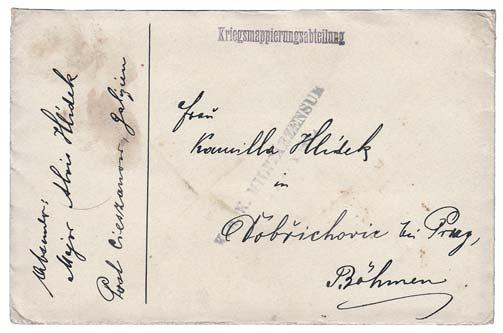 Kriegsmappierungsabteilung
K.u.K. MILITÄRZENSUR
Frau
Kamilla Hlídek
in
Dobřichovic bei Prag,
Böhmen
Absender:
Major Alois Hlídek
Post Cieszanow, Galizien